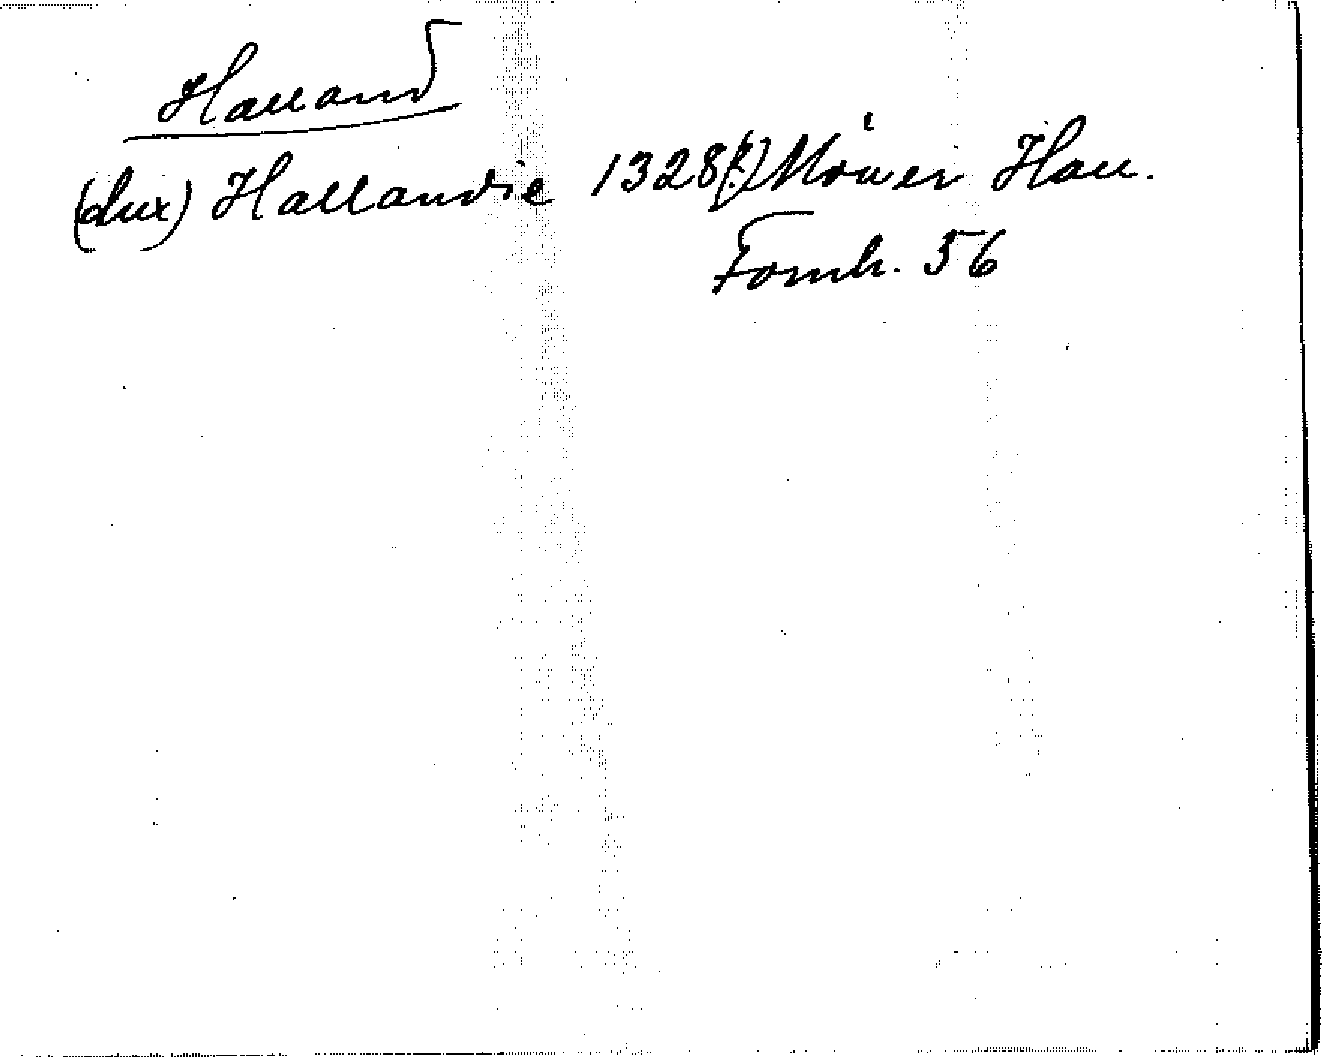 Halland
(dux) Hallandie 1328(?) Möller Hall.
Fornh. 56